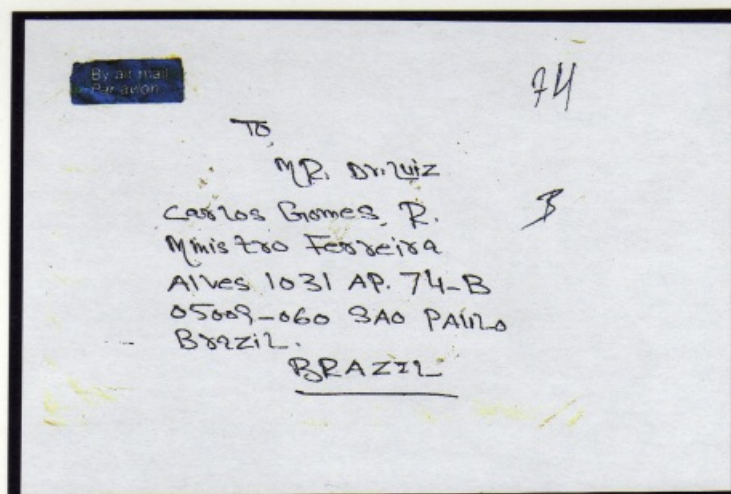 By air mail
Par avion
74
TO
MR. Dr. Luiz
Carlos Gomes, R.
Ministro Ferreira
Alves 1031 AP. 74-B
05009-060 SAO PAULO
Brazil.
BRAZIL
B